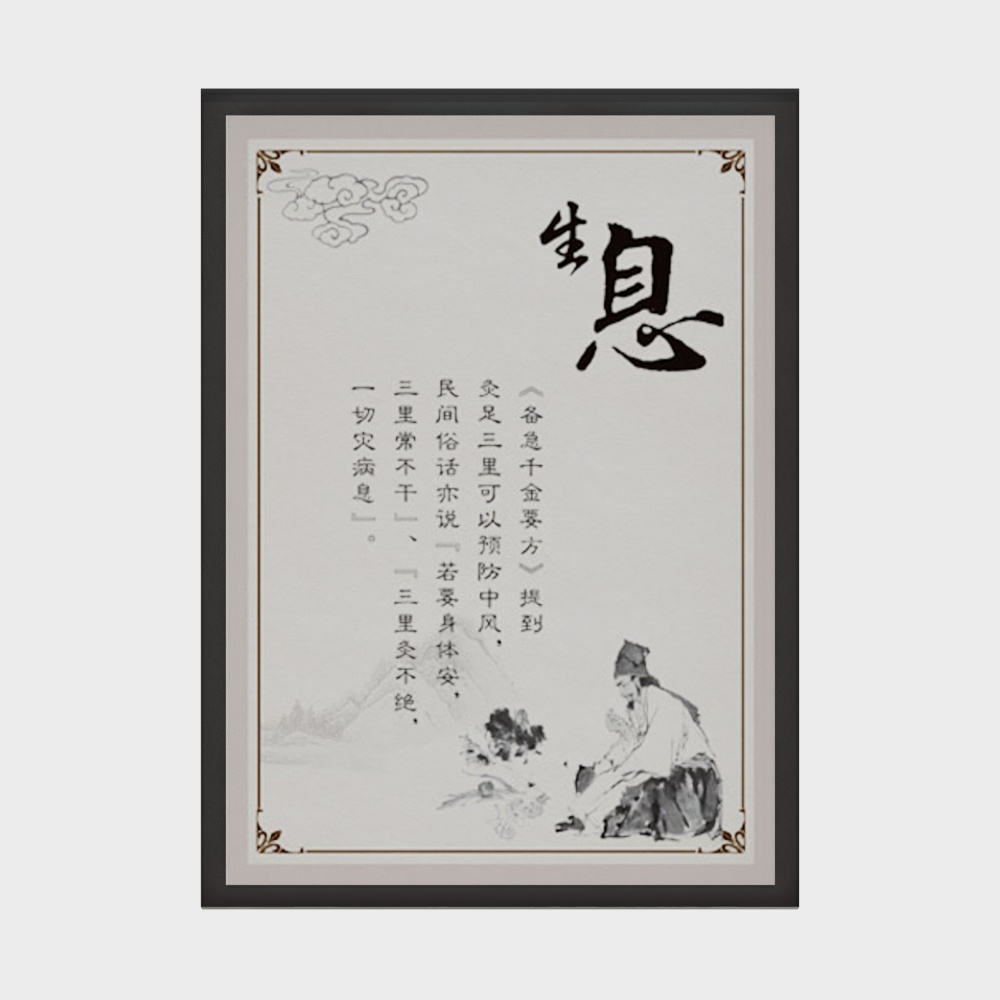 生息
《备急千金要方》提到
灸足三里可以预防中风，
民间俗话亦说『若要身体安，
三里常不干』、『三里灸不绝，
一切灾病息』。